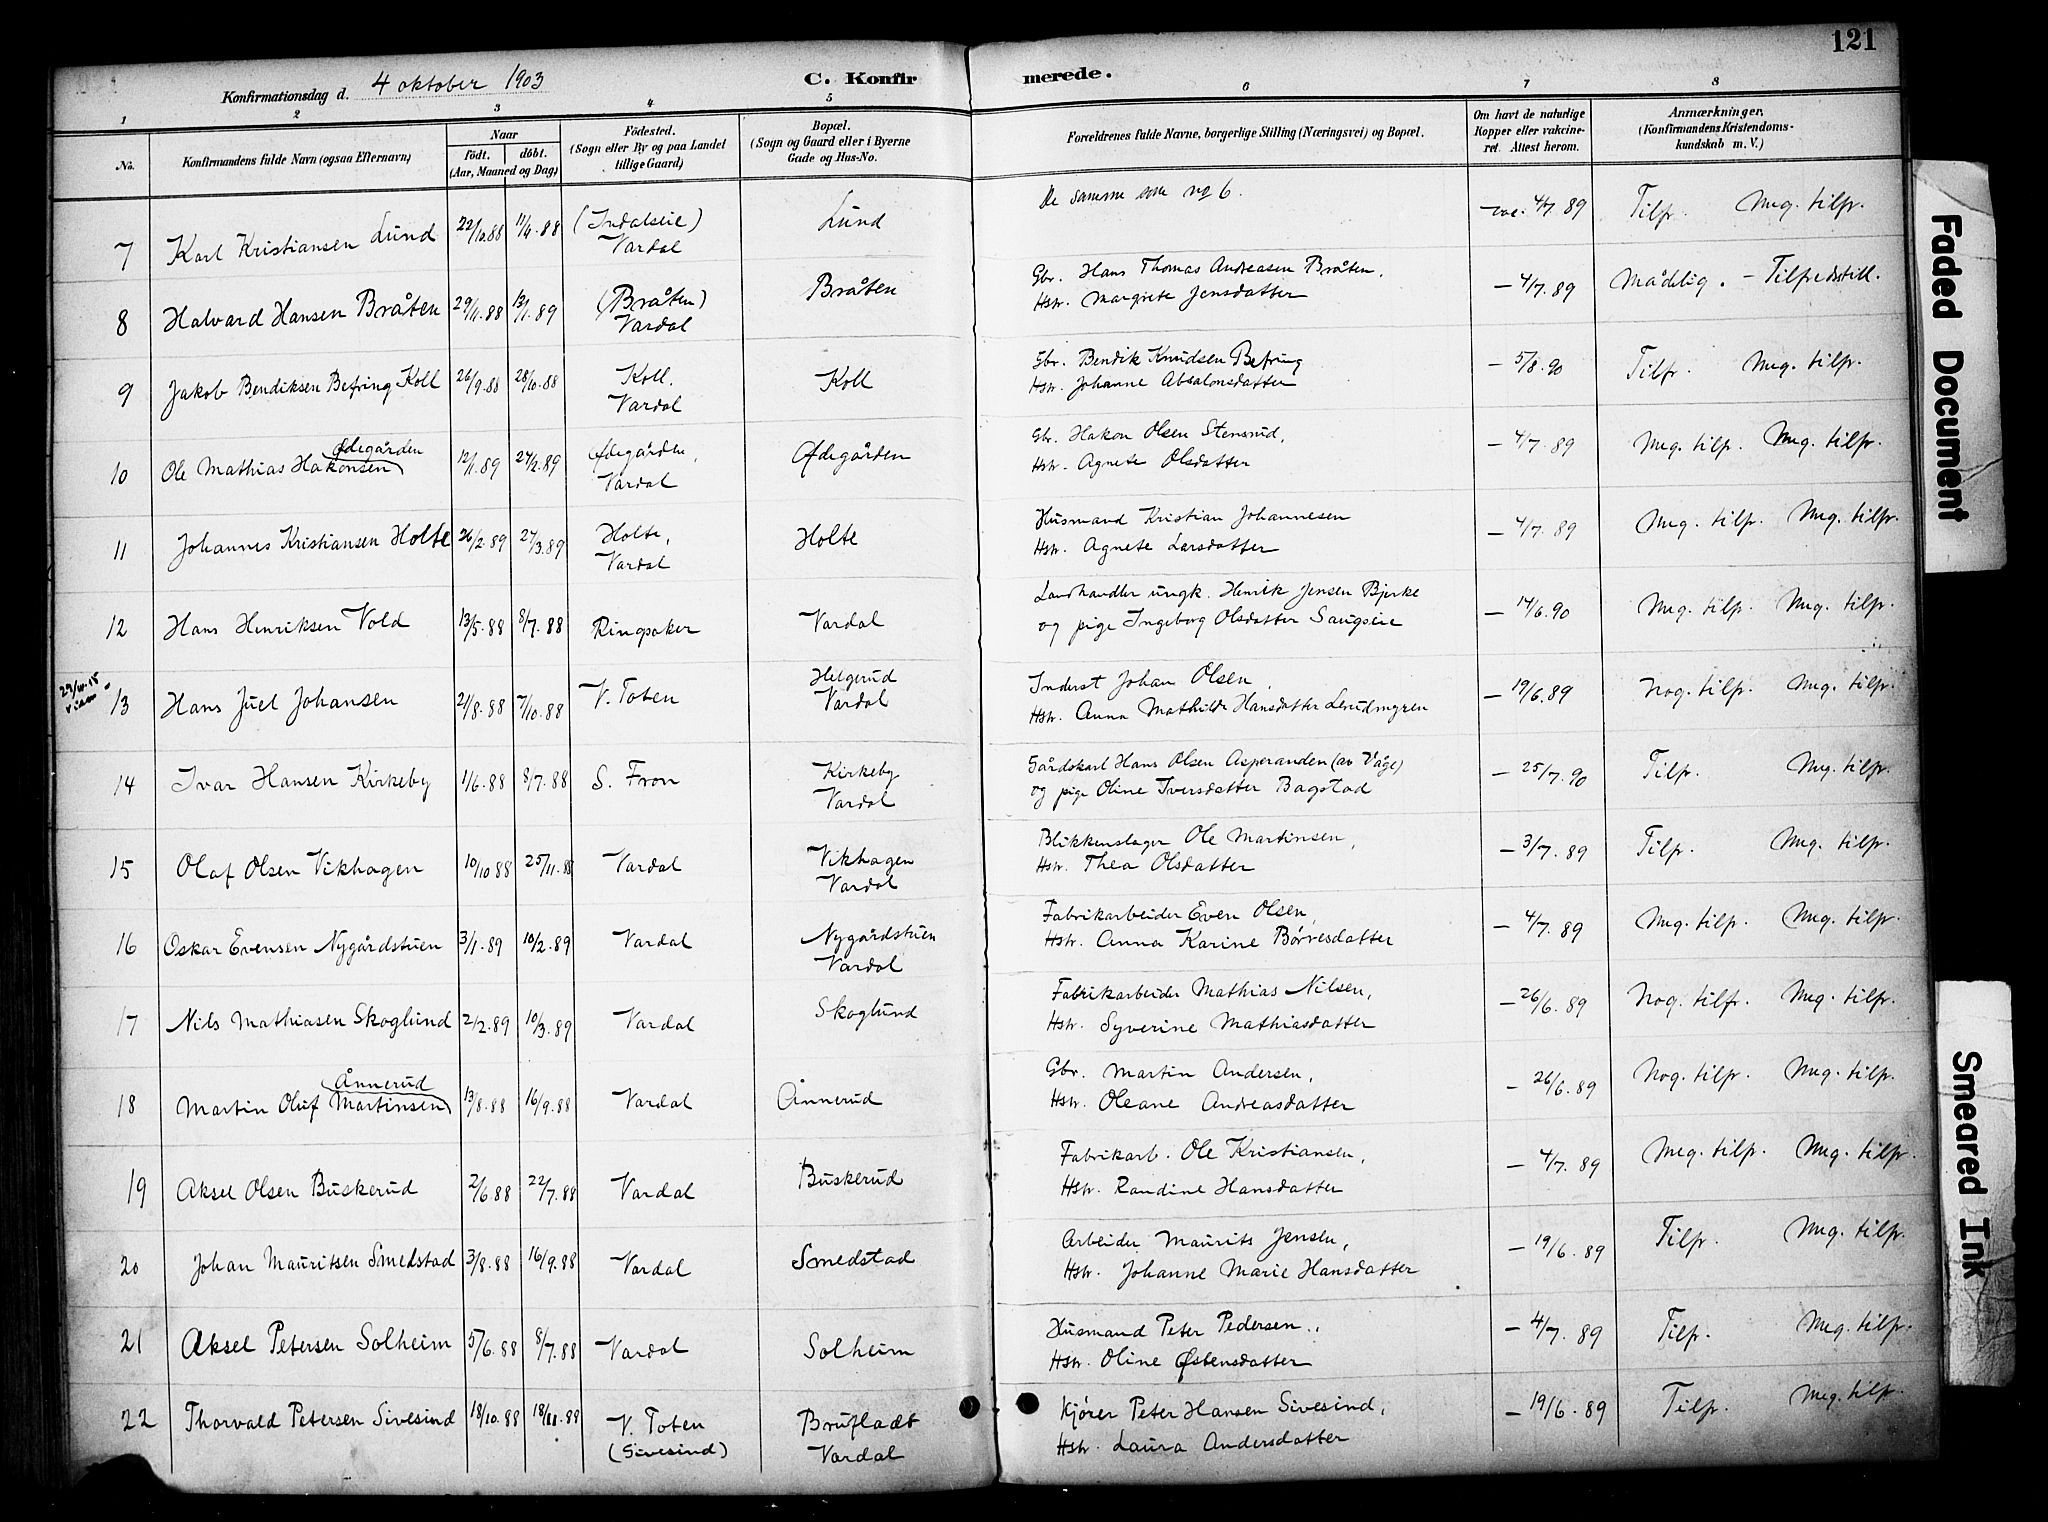 121
Konfirmationsdag d. 4 oktober 1903 C. Konfirmerede.
1 2 3 4 5 6 7 8
No. Konfirmandens fulde Navn (ogsaa Efternavn) Naar födt. döbt. (Aar, Maaned og Dag) Födested. (Sogn eller By og paa Landet tillige Gaard) Bopæl. (Sogn og Gaard eller i Byerne Gade og Hus-No. Forældrenes fulde Navne, borgerlige Stilling (Næringsvei) og Bopæl. Om havt de naturlige Kopper eller vakcineret. Attest herom. Anmærkninger, (Konfirmandens Kristendomskundskab m. V.)
7 Karl Kristiansen Lund 22/10.88 11/4.88 (Indalseie) Vardal Lund De samme som no 6. vac. 4/7 89 Tilfr. Meg. tilfr.
8 Halvard Hansen Bråten 29/11.88 13/1.89 (Bråten) Vardal Bråten Gbr. Hans Thomas Andreasen Bråten,
Hstr. Margrete Jensdatter – 4/7.89 Mådelig. – Tilfredsstill.
9 Jakob Bendiksen Befring Koll 26/9.88 28/10.88 Koll, Vardal Koll Gbr. Bendik Knudsen Befring
Hstr. Johanne Absalonsdatter – 5/8.90 Tilfr. Meg. tilfr.
10 Ole Mathias Hakonsen Ødegården 12/1.89 24/2.89 Ødegården, Vardal Ødegården Gbr. Hakon Olsen Stensrud,
Hstr. Agnete Olsdatter – 4/7.89 Meg. tilfr. Meg. tilfr.
11 Johannes Kristiansen Holte 26/2.89 27/3.89 Holte, Vardal Holte Husmand Kristian Johannesen
Hstr. Agnete Larsdatter – 4/7.89 Meg. tilfr. Meg. tilfr.
12 Hans Henriksen Vold 13/5.88 8/7.88 Ringsaker Vardal Landhandler ungk. Henrik Jensen Bjerke
og pige Ingeborg Olsdatter Saugseie – 14/6.90 Meg. tilfr. Meg. tilfr.
13 Hans Juel Johansen 21/8.88 7/10.88 V. Toten Helgerud Vardal Inderst Johan Olsen,
Hstr. Anna Mathilde Hansdatter Lerudmyren – 19/6.89 Nog. tilfr. Meg. tilfr.
14 Ivar Hansen Kirkeby 1/6.88 8/7.88 S. Fron Kirkeby Vardal Gårdskarl Hans Olsen Asperanden (av Våge)
og pige Oline Iversdatter Bagstad – 25/7.90 Tilfr. Meg. tilfr.
15 Olaf Olsen Vikhagen 10/10 88 25/11.88 Vardal Vikhagen Vardal Blikkenslager Ole Martinsen,
Hstr. Thea Olsdatter – 3/7.89 Tilfr. Meg. tilfr.
16 Oskar Evensen Nygårdstuen 3/1.89 10/2.89 Vardal Nygårdstuen Vardal Fabrikarbeider Even Olsen,
Hstr. Anna Karine Børresdatter – 4/7.89 Meg. tilfr. Meg. tilfr.
17 Nils Mathiasen Skoglund 2/2.89 10/3.89 Vardal Skoglund Fabrikarbeider Mathias Nilsen,
Hstr. Syverine Mathiasdatter – 26/6.89 Nog. tilfr. Meg. tilfr.
18 Martin Oluf Martinsen Ånnerud 13/8.88 16/9.88 Vardal Ånnerud Gbr. Martin Andersen,
Hstr. Oleane Andreasdatter – 26/6.89 Nog. tilfr. Meg. tilfr.
19 Aksel Olsen Buskerud 2/6.88 22/7.88 Vardal Buskerud Fabrikarb. Ole Kristiansen,
Hstr. Randine Hansdatter – 4/7.89 Meg. tilfr. Meg. tilfr.
20 Johan Mauritsen Smedstad 3/8.88 16/9.88 Vardal Smedstad Arbeider Maurits Jensen,
Hstr. Johanne Marie Hansdatter – 19/6.89 Tilfr. Meg. tilfr.
21 Aksel Petersen Solheim 5/6.88 8/7.88 Vardal Solheim Husmand Peter Pedersen,
Hstr. Oline Østensdatter – 4/7.89 Tilfr. Meg. tilfr.
22 Thorvald Petersen Sivesind 18/10.88 18/11.88 V. Toten (Sivesind) Brufladt Vardal Kjører Peter Hansen Sivesind,
Hstr. Laura Andersdatter – 19/6.89 Tilfr. Meg. tilfr.
Faded Document
Smeared Ink